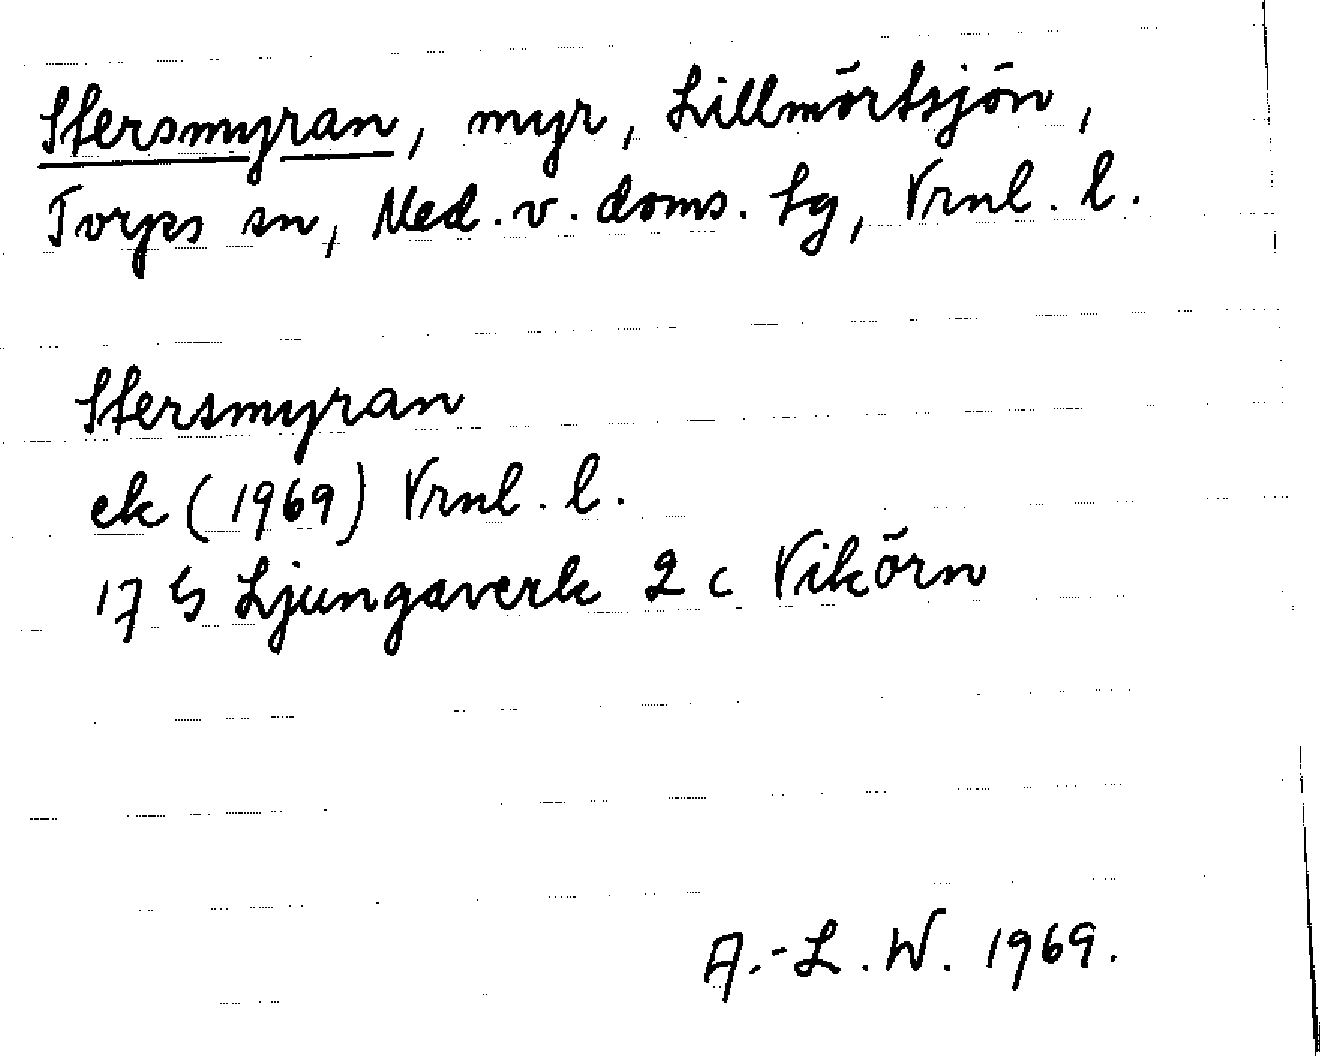 Stersmyran, myr, Lillmörtsjön,
Torps sn, Med. v. doms. tg, Vrnl. l.
Stersmyran
ek (1969) Vrnl. l.
17 G Ljungaverk 2 c Vikörn
A.-L. W. 1969.